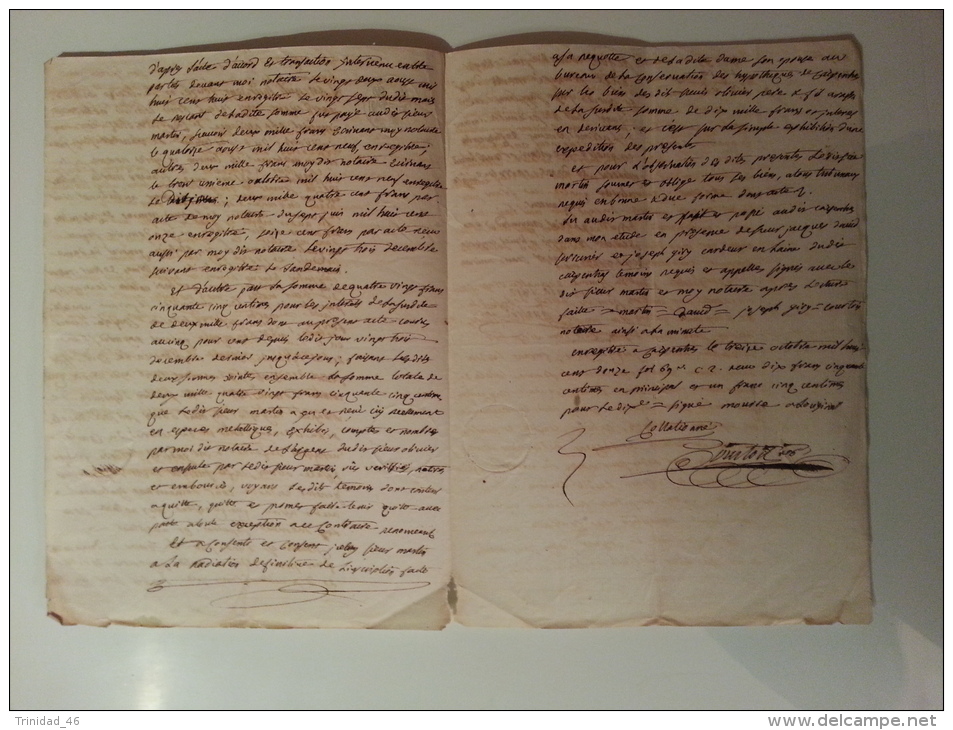 d'après l'acte d'accord et transaction intervenu entre
parties devant moi notaire le vingt deux aoust mil
huit cent huit enregistré le vingt sept dudit mois
le restant de ladite somme fut payé audit sieur
martin, savoir deux mille francs écrivant moy notaire
le quatorze aoust mil huit cent neuf, enregistré,
autres deux mille francs moy dit notaire écrivant
le trente unieme octobre mil huit cent neuf enregistré
le ; deux mille quatre cent francs par
acte de moy notaire du sept juin mil huit cent
onze enregistré, seize cent francs par acte reçu
aussi par moy dit notaire le vingt trois décembre
suivant enregistré le landemain.
Et d'autre part la somme de quatre vingt francs
cinquante cinq centimes pour les intérêts de la susdite
de deux mille francs dont au présent acte courus
au cinq pour cent depuis ledit jour vingt trois
décembre dernier jusqu'à ce jour; faisant lesdites
deux sommes jointes ensemble la somme totale de
deux mille quatre vingt francs cinquante cinq centimes
que ledit sieur martin a ici reellement
en especes metalliques, exhibés, comptés et nombrés
par moi dit notaire de l'argent dudit sieur olivier
et ensuite par ledit sieur martin, vûs vérifiés, retirés
et emboursés, voyant lesdits temoins dont content
a quitté, quitte et promet faire tenir quitte avec
pacte exception a ce contraire renoncant
Et a consenti et consent icelluy sieur martin
a la radiation definitive de l'inscription faite
a sa requette et de ladite dame son epouse au
bureau de la conservation des hypotheques de Carpentras
sur les biens des dits sieurs olivier pere & fil
de la susdite somme de dix mille francs et interets
en derivans, et c'est sur la simple exhibition d'une
expedition des presentes
et pour l'observation des dites presentes ledit sieur
martin soumet et oblige tous ses biens, a tous tribunaux
requis en bonne & due forme dont acte
lu audit martin et fait et passé audit carpentras
dans mon etude en presence de sieur jacques david
serrurier et joseph gizy cardeur en laine dudit
carpentras temoins requis et appellés signés avec le
dit sieur martin et moy notaire apres lecture
faite = martin = David = joseph gizy = tourtot
notaire ainsi a la minute
enregistré a Carpentras le treize octobre mil huit
cent douze fol 69 r° c. 2. reçu dix francs cinquante
centimes en principal et un franc cinq centimes
pour le dix.e = signé
Collationné
Trinidad_46
www.delcampe.net